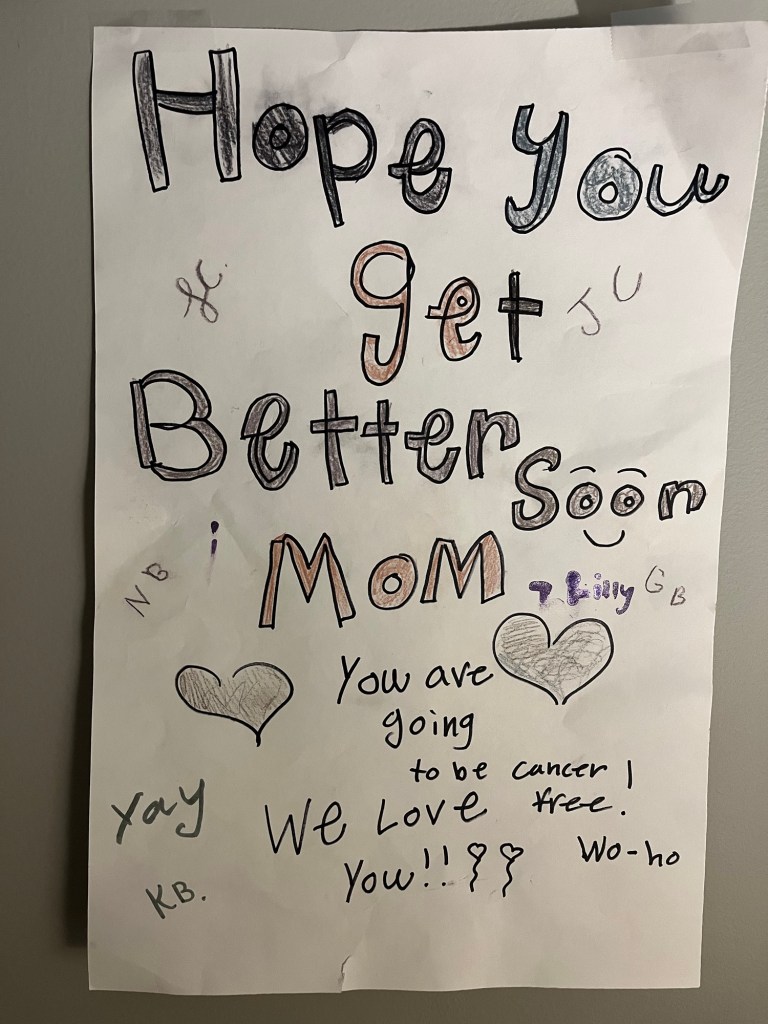 Hope You
get
JU
Better
Soon
NB
MoM
Lilly
GB
You are
going
to be cancer
free!
Yay
We Love
You!!
Wo-ho
KB.